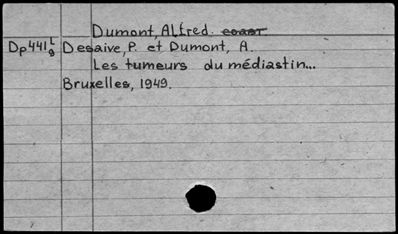 Dumont, Alfred.
Dp441L8 Desaive, P. et Dumont, A.
Les tumeurs du médiastin...
Bruxelles, 1949.